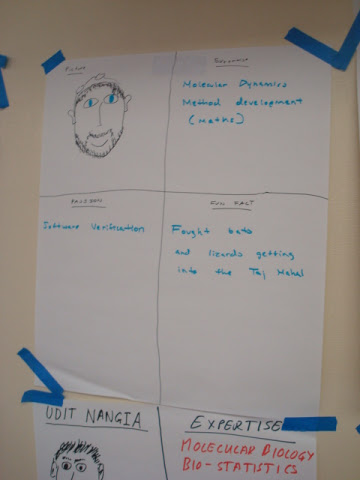 Molecular Dynamics
Method development
(maths)
Software Verification
FUN FACT
Fought bats
and lizards getting
into the Taj Mahal
UDIT NANGIA
EXPERTISE
MOLECULAR BIOLOGY
BIO-STATISTICS